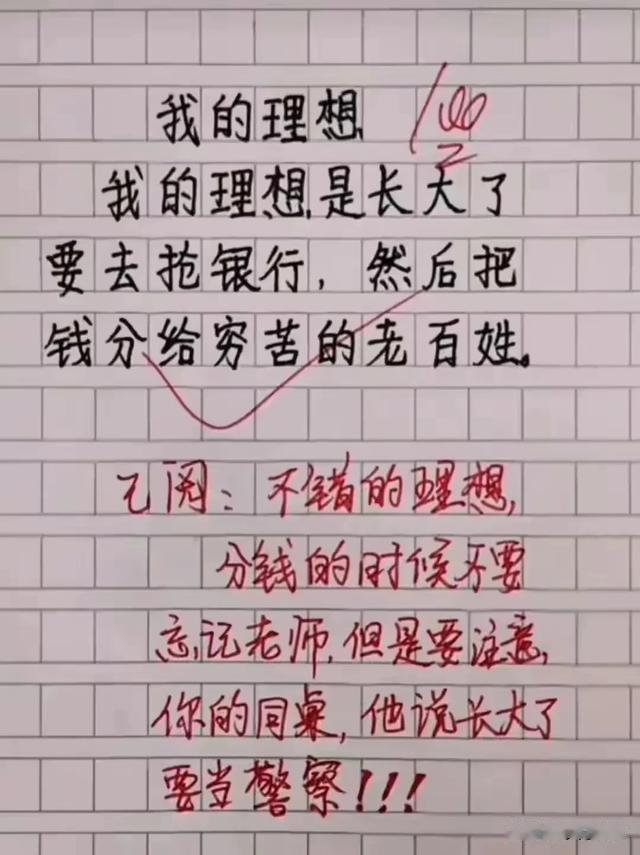 我的理想
100
我的理想是长大了
要去抢银行，然后把
钱分给穷苦的老百姓。
已阅：不错的理想，
分钱的时候不要
忘记老师，但是要注意，
你的同桌，他说长大了
要当警察！！！